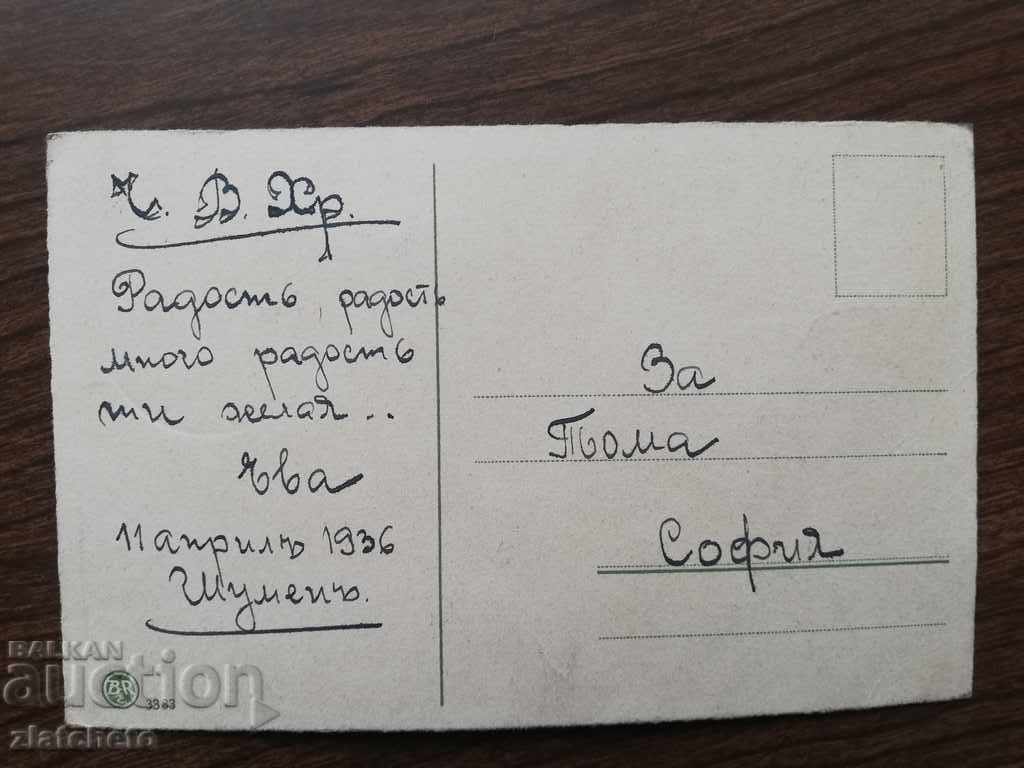 Ч. В. Хр.
Радость, радость
много радость
ти желая..
Ева
11 априлъ 1936
Шуменъ.
За
Тома
София
BR
3383
BALKAN
auction
zlatcheto